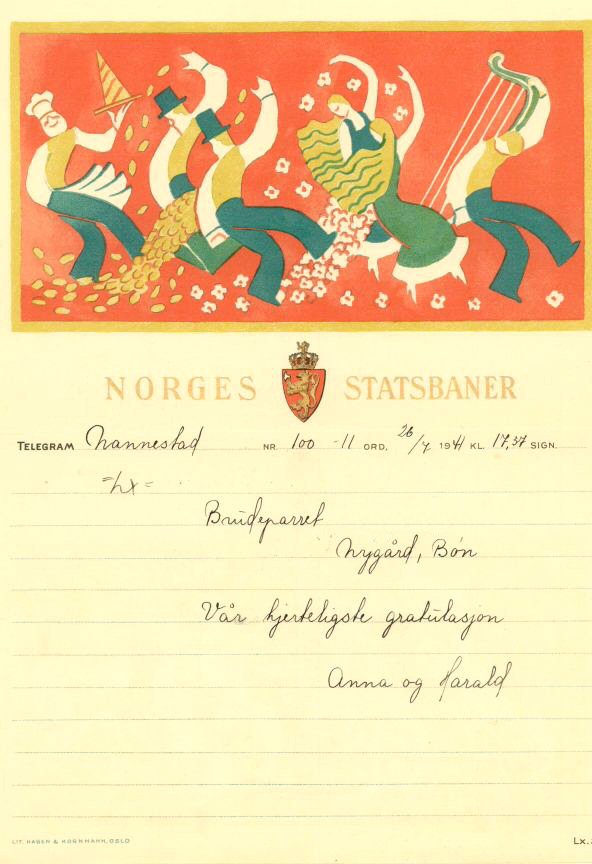 NORGES STATSBANER
TELEGRAM Nannestad NR. 100 -11 ORD. 26/7 1941 KL. 17,37 SIGN.
=Lx=
Brudeparret
Nygård, Bøn
Vår hjerteligste gratulasjon
Anna og Harald
LIT. HAGEN & KORNMANN, OSLO
Lx.